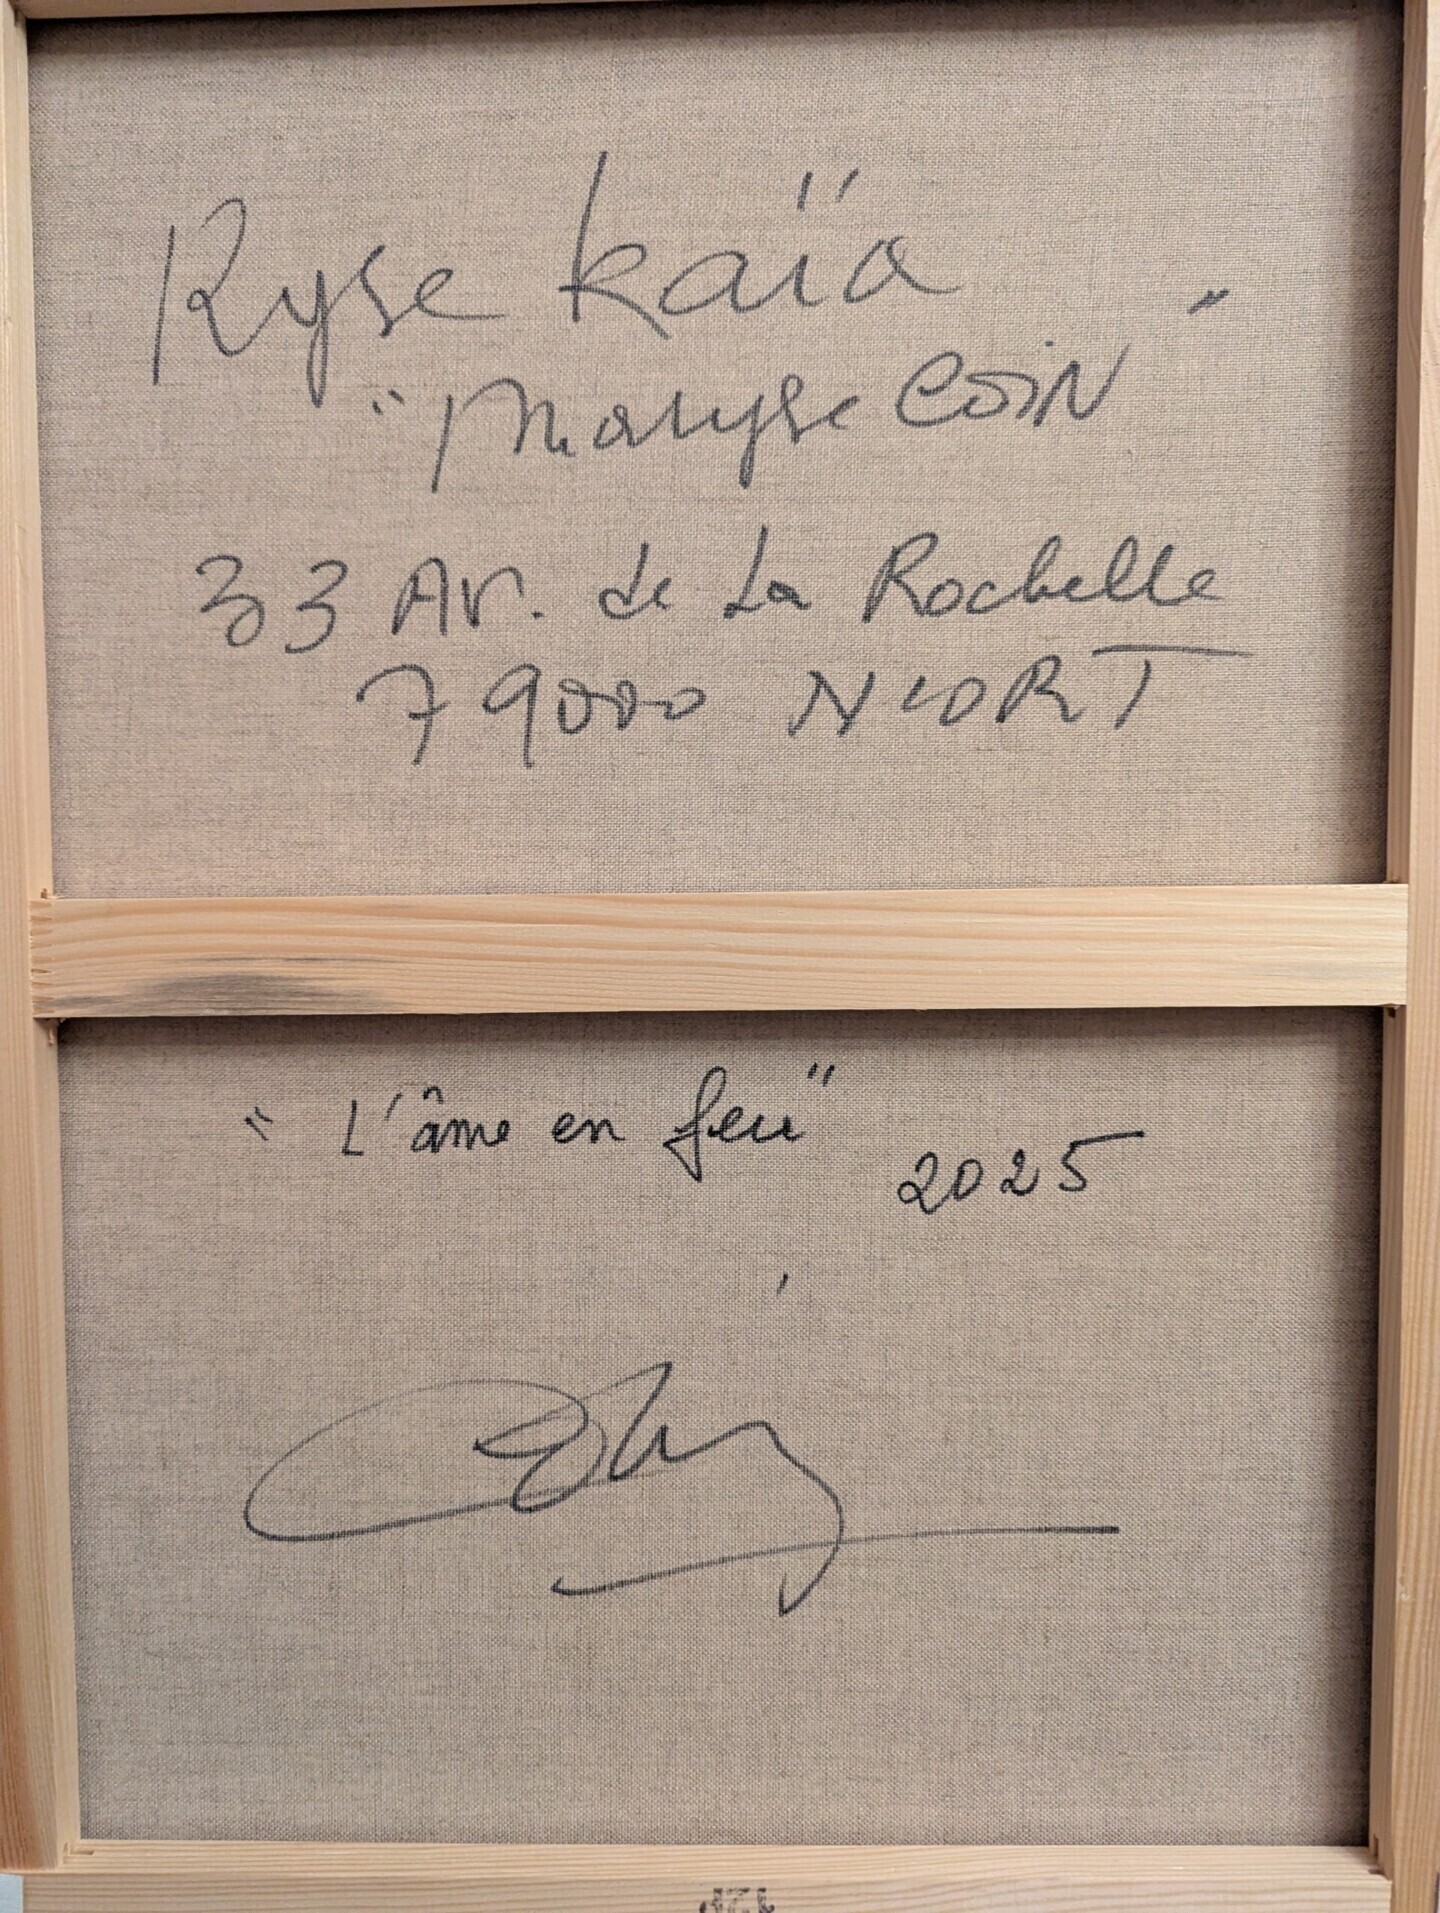 Ryse kaïa
"Maryse COIN"
33 Av. de La Rochelle
79000 NIORT
"L'âme en feu"
2025
12P